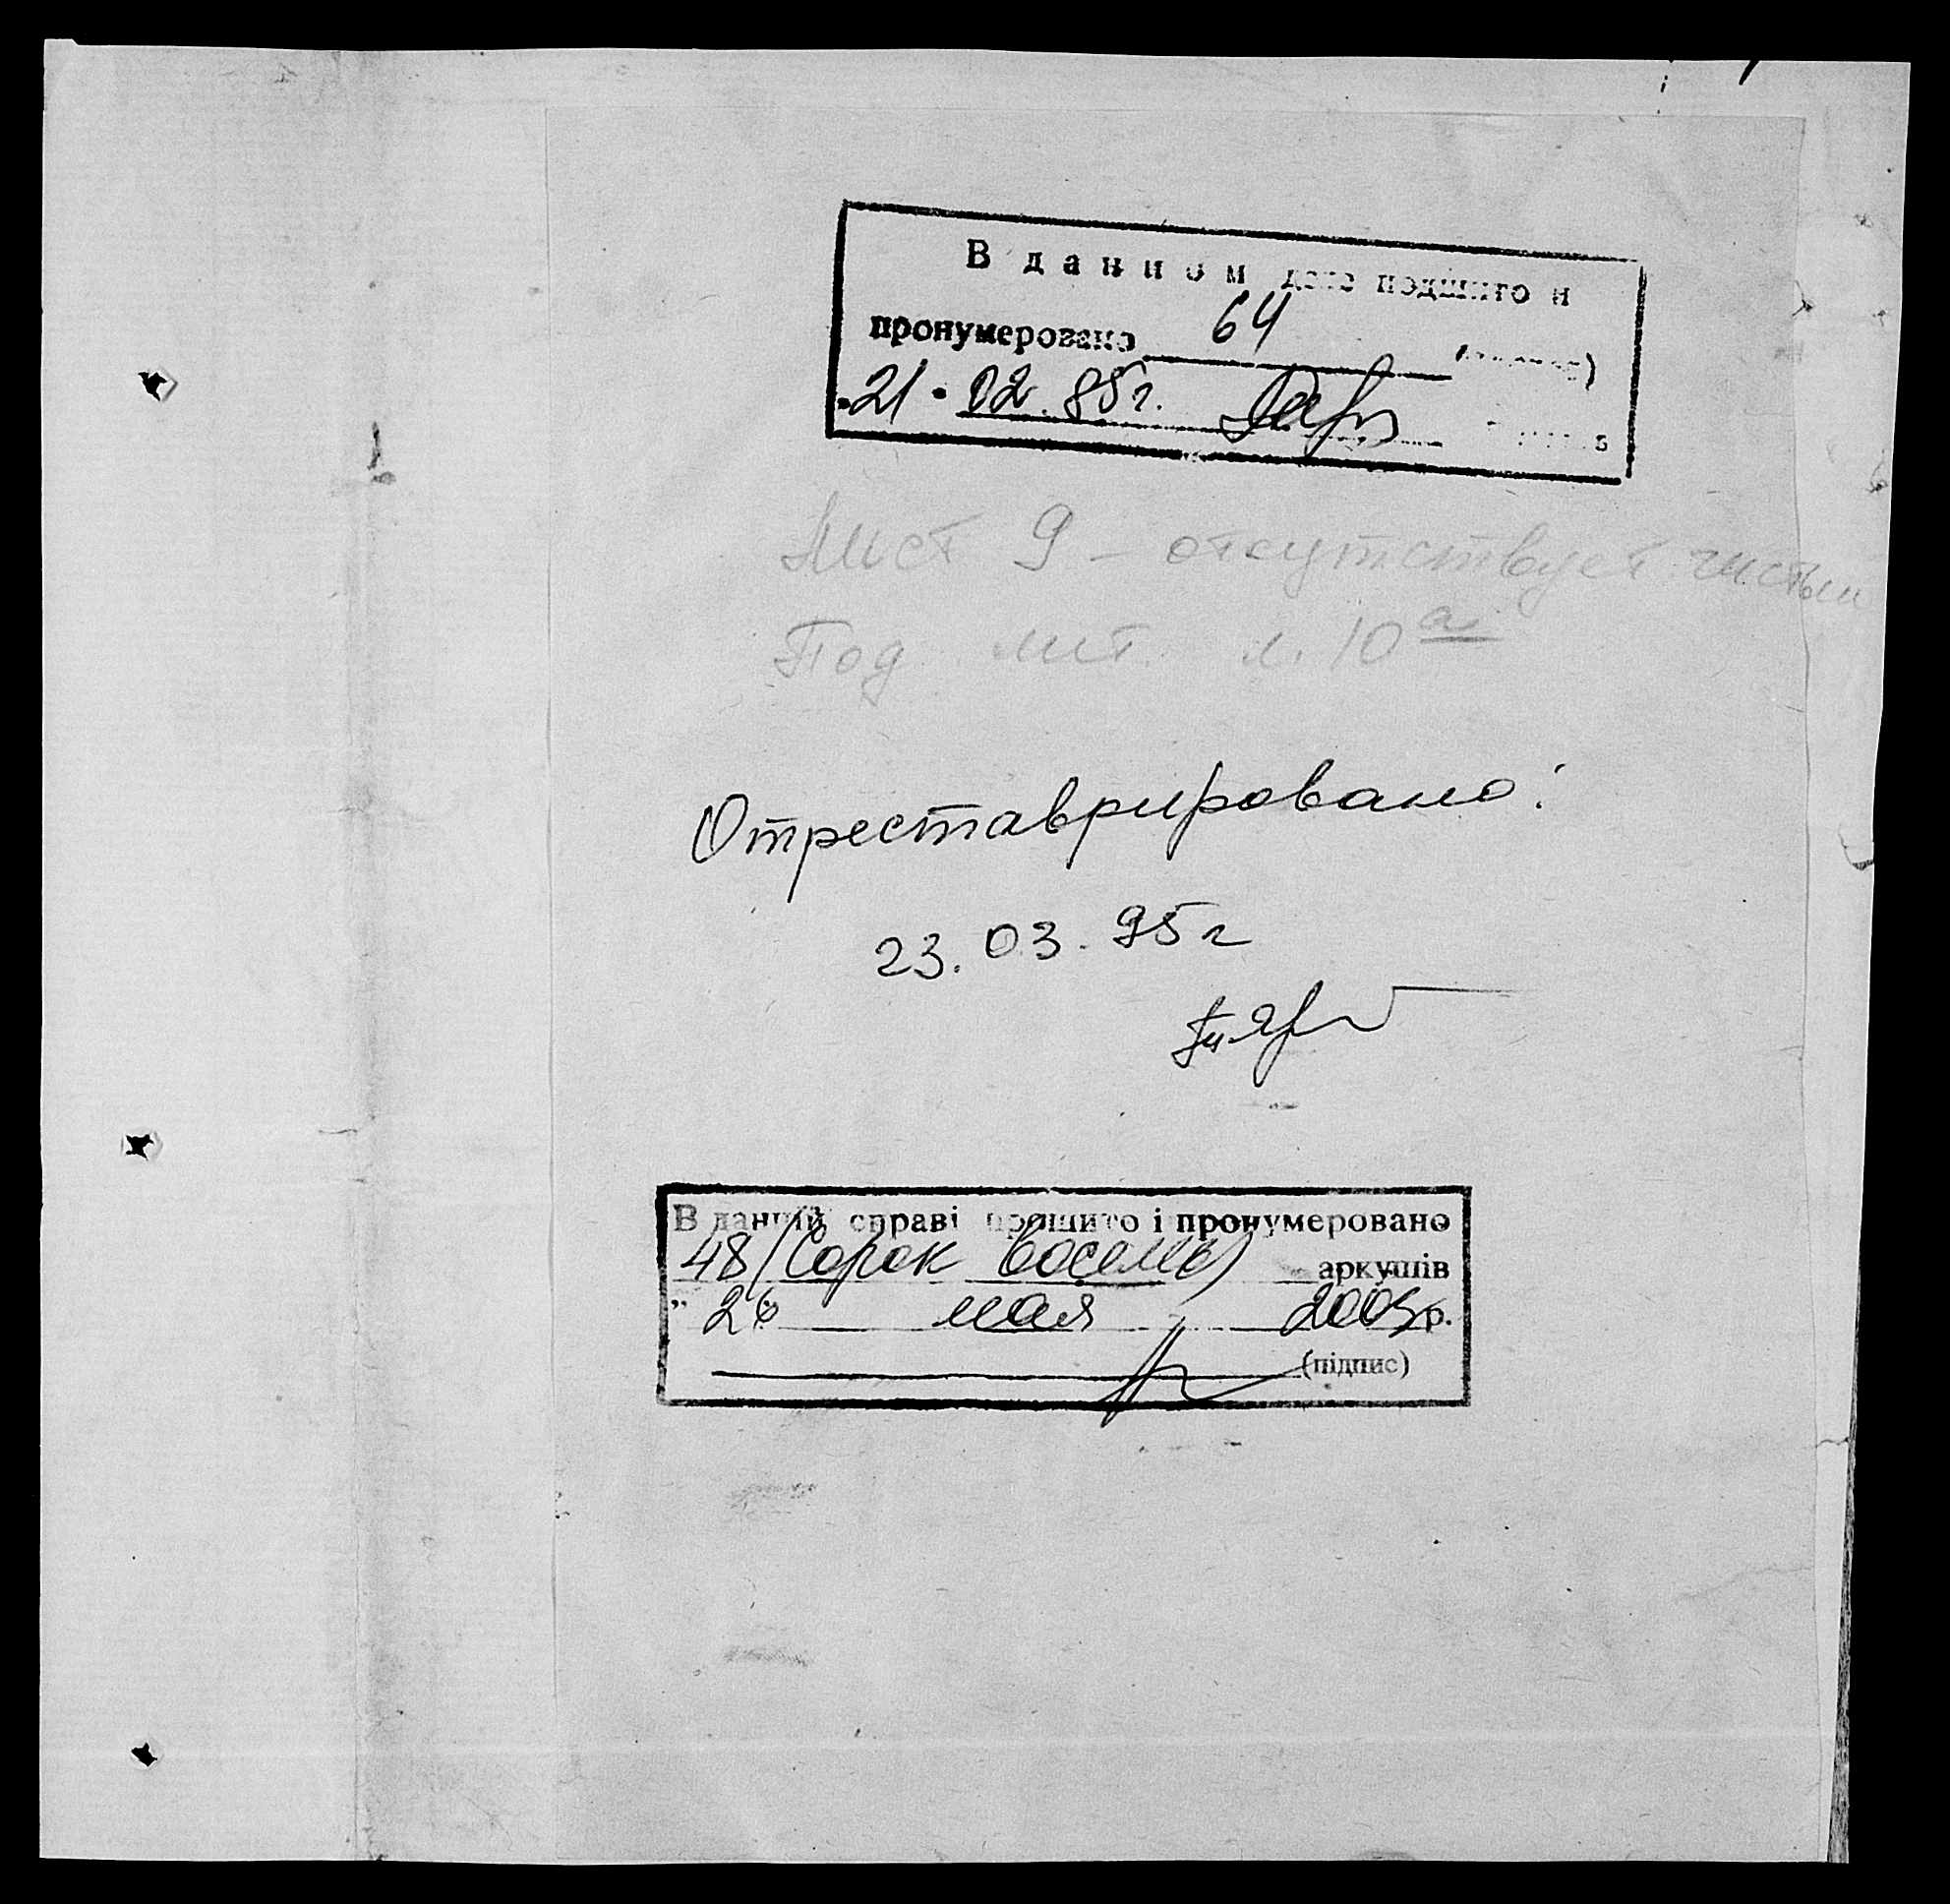 В данном деле подшито и
пронумеровано 64
21. 02. 85 г.
Лист 9 – отсутствует чистый
Под лит. л. 10 а
Отреставрировано:
23. 03. 95 г
В даній справі прошито і пронумеровано
48 (Сорок восемь) аркушів
" 26 мая 2005 р.
(підпис)